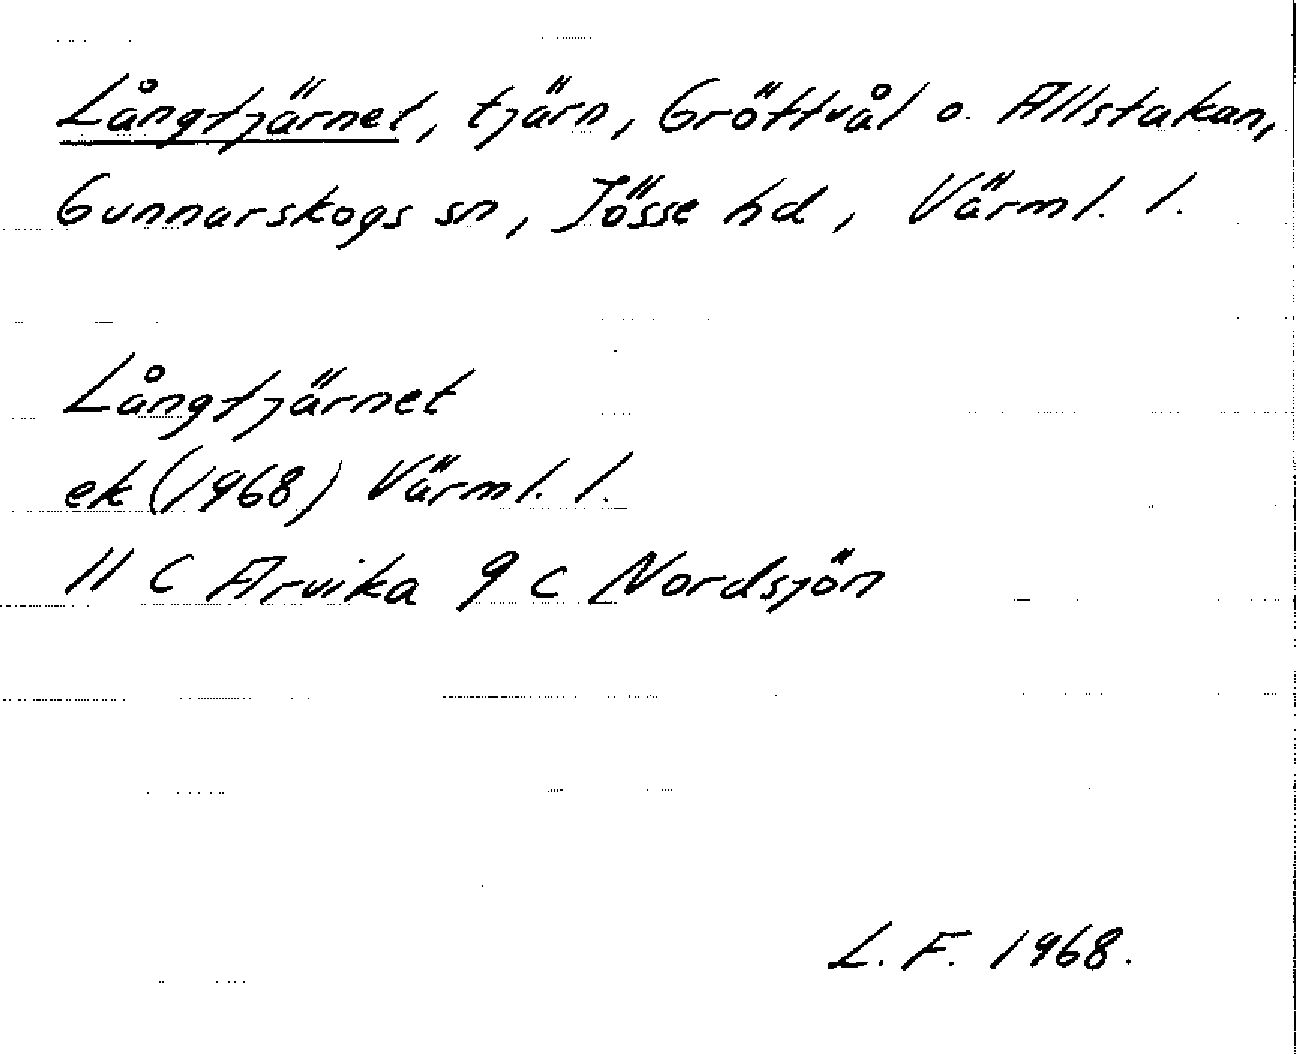 Långtjärnet, tjärn, Gröttvål o. Allstakan,
Gunnarskogs sn, Jösse hd, Värml. l.
Långtjärnet
ek (1968) Värml. l.
11 C Arvika 9 c Nordsjön
L. F. 1968.